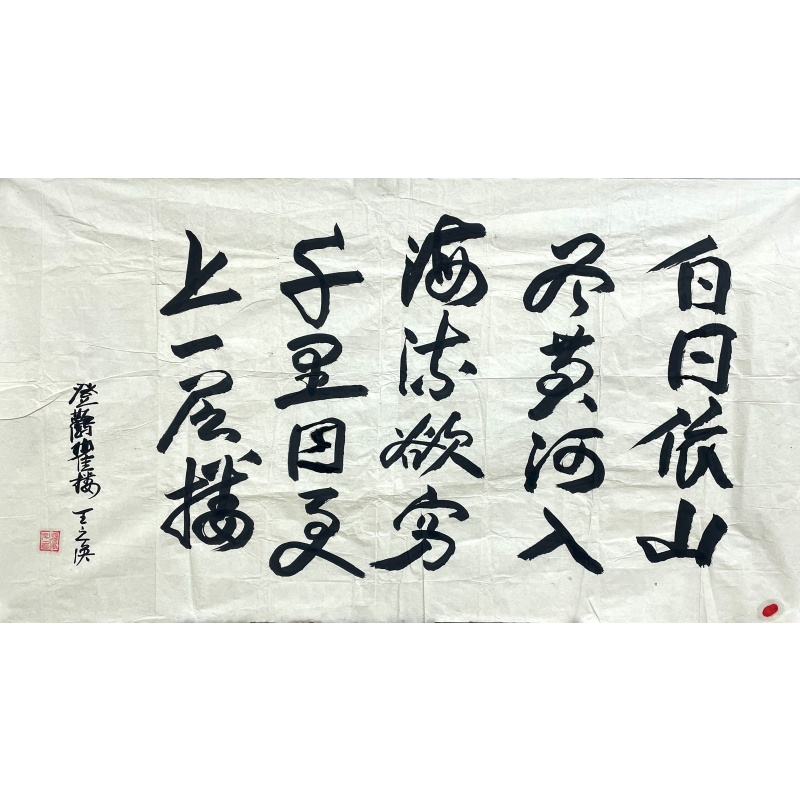 白日依山
尽黄河入
海流欲穷
千里目更
上一层楼
澄鹳雀楼 王之涣